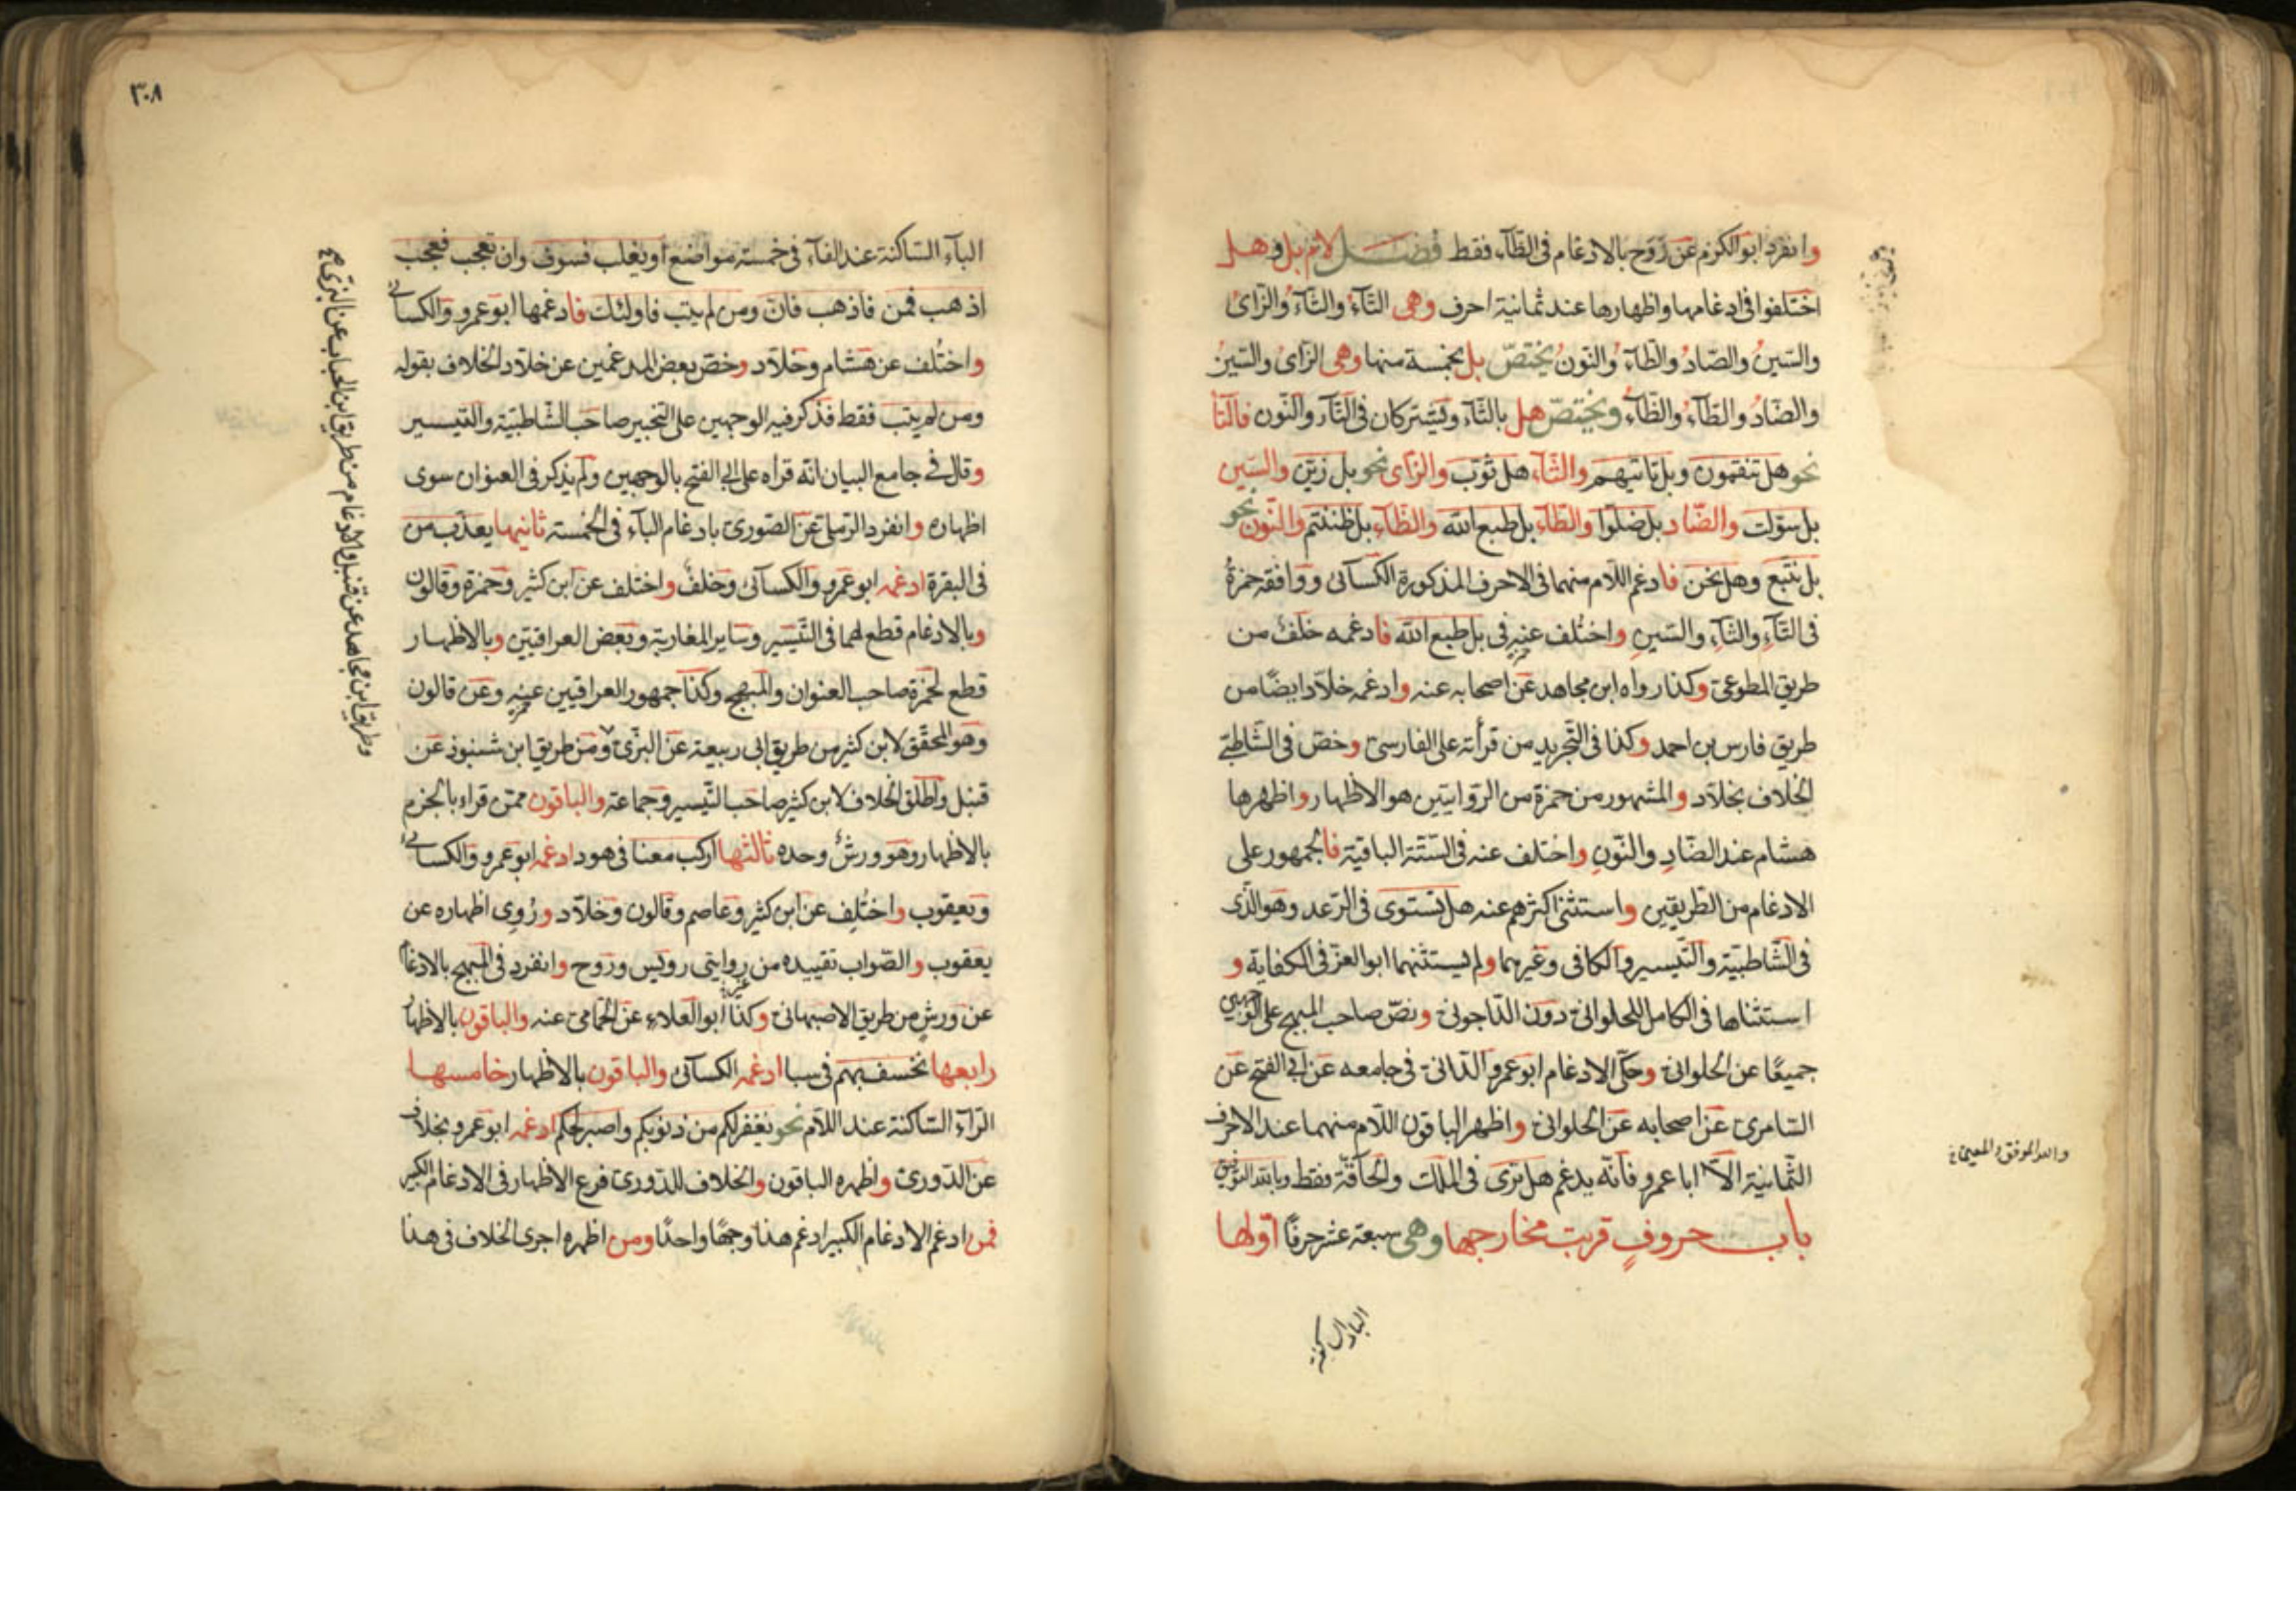 وانفرد ابو الكرم عن روح بالادغام فى الظآء فقط فصــل لام بل وهل
اختلفوا فى ادغامها واظهارها عند ثمانية احرف وهى التآء والثآء والزاى
والسين والضاد والطآء والظآء والنون يختص بل بخمسة منها وهى الزاى والسين
والضاد والطآء والظآء ويختص هل بالثآء ويشتركان فى التآء والنون فالتا
نحو هل تنقمون وبل تاتيهم والثآء هل ثوب والزاى نحو بل زين والسين
بل سولت والضاد بل ضلوا والطآء بل طبع الله والظآء بل ظننتم والنون نحو
بل نتبع وهل نحن فادغم اللام منهما فى الاحرف المذكورة الكسآئى ووافقه حمزة
فى التآء والثآء والسين واختلف عنه فى بل طبع الله فادغمه خلف من
طريق المطوعى وكذا رواه ابن مجاهد عن اصحابه عنه وادغمه خلاد ايضا من
طريق فارس بن احمد وكذا فى التجريد من قرأته على الفارسى وخص فى الشاطبية
الخلاف بخلاد والمشهور من حمزة من الروايتين هو الاظهار واظهرها
هشام عند الضاد والنون واختلف عنه فى الستة الباقية فالجمهور على
الادغام من الطريقين واستثنى اكثرهم عنه هل تستوى فى الرعد وهو الذى
فى الشاطبية والتيسير والكافى وغيرهما ولم يستثنها ابو العز فى الكفاية و
استثناها فى الكامل للحلوانى دون الداجونى ونص صاحب المبهج على الوجهين
جميعا عن الحلوانى وحكى الادغام ابو عمرو الدانى فى جامعه عن ابى الفتح عن
السامرى عن اصحابه عن الحلوانى واظهر الباقون اللام منهما عند الاحرف
الثمانية الا ابا عمرو فانه يدغم هل ترى فى الملك والحاقة فقط وبالله التوفيق
والله الموفق والمعين
باب حروف قربت مخارجها وهى سبعة عشر حرفا اولها
البا الساكنة
٣٠٨
البآء الساكنة عند الفآء فى خمسة مواضع او يغلب فسوف وان تعجب فعجب
اذهب فمن فاذهب فان ومن لم يتب فاولئك فادغمها ابو عمرو والكسائى
واختلف عن هشام وخلاد وخص بعض المدغمين عن خلاد الخلاف بقوله
ومن لم يتب فقط فذكر فيه الوجهين على التخيير صاحب الشاطبية والتيسير
وقال فى جامع البيان انه قراه على ابى الفتح بالوجهين ولم يذكر فى العنوان سوى
اظهاره وانفرد الرملى عن الصورى بادغام البآء فى الخمسة ثانيها يعذب من
فى البقرة ادغمه ابو عمرو والكسآئى وخلف واختلف عن ابن كثير وحمزة وقالون
وبالادغام قطع لهما فى التيسير وساير المغاربة وبعض العراقيين وبالاظهار
قطع لحمزة صاحب العنوان والمبهج وكذا جمهور العراقيين عنه وعن قالون
وهو المحقق لابن كثير من طريق ابى ربيعة عن البزى ومن طريق ابن شنبوذ عن
قنبل واطلق الخلاف لابن كثير صاحب التيسير وجماعة والباقون ممن قراء بالجزم
بالاظهار وهو ورش وحده ثالثها اركب معنا فى هود ادغمه ابو عمرو والكسائى
ويعقوب واختلف عن ابن كثير وعاصم وقالون وخلاد وروى اظهاره عن
يعقوب والصواب تقييده من روايتى رويس وروح وانفرد فى المبهج بالادغام
عن ورش من طريق الاصبهانى وكذا ابو العلاء عن الحمامى عنه والباقون بالاظهار
رابعها نخسف بهم فى سبا ادغمه الكسآئى والباقون بالاظهار خامسها
الرآء الساكنة عند اللام نحو نغفر لكم من ذنوبكم واصبر لحكم ادغمه ابو عمرو بخلاف
عن الدورى واظهره الباقون والخلاف للدورى فرع الاظهار فى الادغام الكبير
فمن ادغم الادغام الكبير ادغم هذا وجها واحدا ومن اظهره اجرى الخلاف فى هذا
وطريق ابن مجاهد عن قنبل والادغام من طريق ابن الحباب عن البزى صح